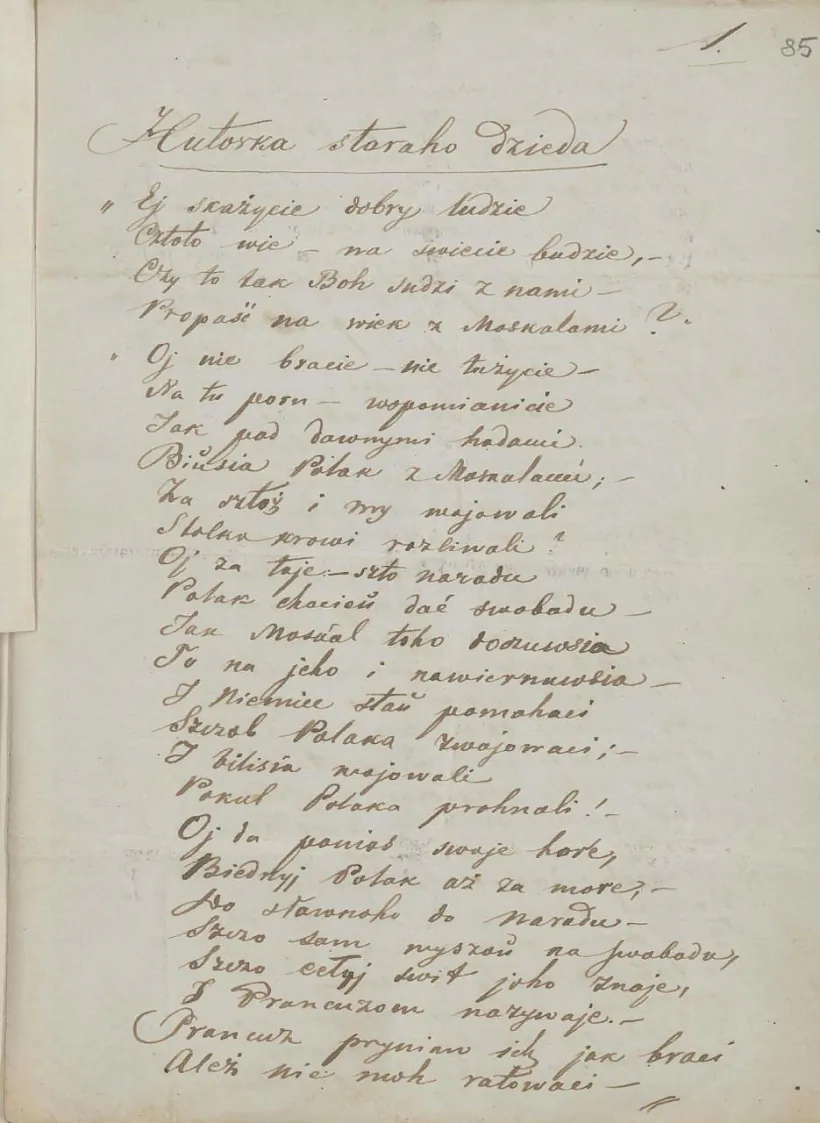 1.
85
Hutorka staraho dzieda
„ Ej skażycie dobry ludzie
Cztoto wie – na swiecie budzie, –
Czy to tak Boh sudzi z nami –
Propaść na wiek z Moskalami ?
" Oj nie bracie – nie tużycie –
Na tu poru – wspomianicie
Jak pad dawnymi hadami.
Biŭsia Polak z Moskalami; –
Za sztoż i my wajawali
Stolko krowi rozliwali ?
Oj za toje – szto naradu
Polak chacieŭ dać swabadu –
Jak Moskal toho doczuwsia
To na jeho i nawiernuwsia –
I Niemiec staŭ pomahaci
Szczob Polaka zwajowaci; –
I bilisia wajowali
Pokul Polaka prohnali ! –
Oj da panios swoje hore,
Biednyj Polak aż za more, –
Do sławnoho do naradu –
Szczo sam wyszoŭ na swabadu,
Szczo cełyj swit joho znaje,
I Francuzom nazywaje. –
Francuz pryniaw ich jak braci
Ależ nie moh ratowaci –